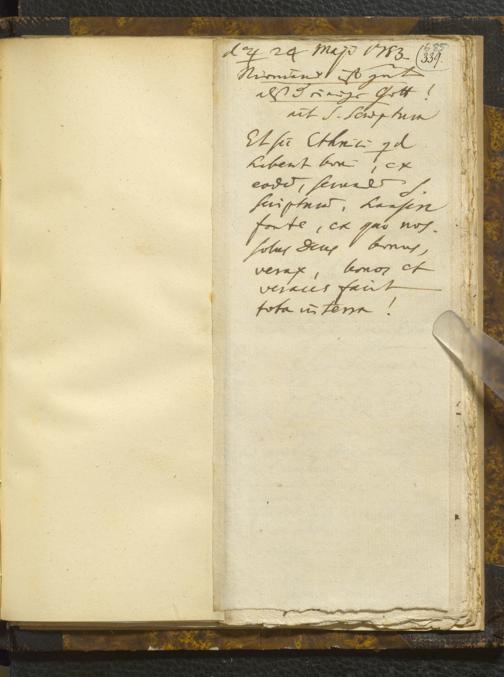 d. 24 Maji 1783.
685
339.
Niemand ist gut
als der einige Gott!
ait S. Scriptura
Et si Ethnici qd
habent boni, ex
eodem, secundum S.
Scripturam, hausere
fonte, ex quo nos.
solus Deus bonus,
verax, bonos et
veraces facit
tota in terra!